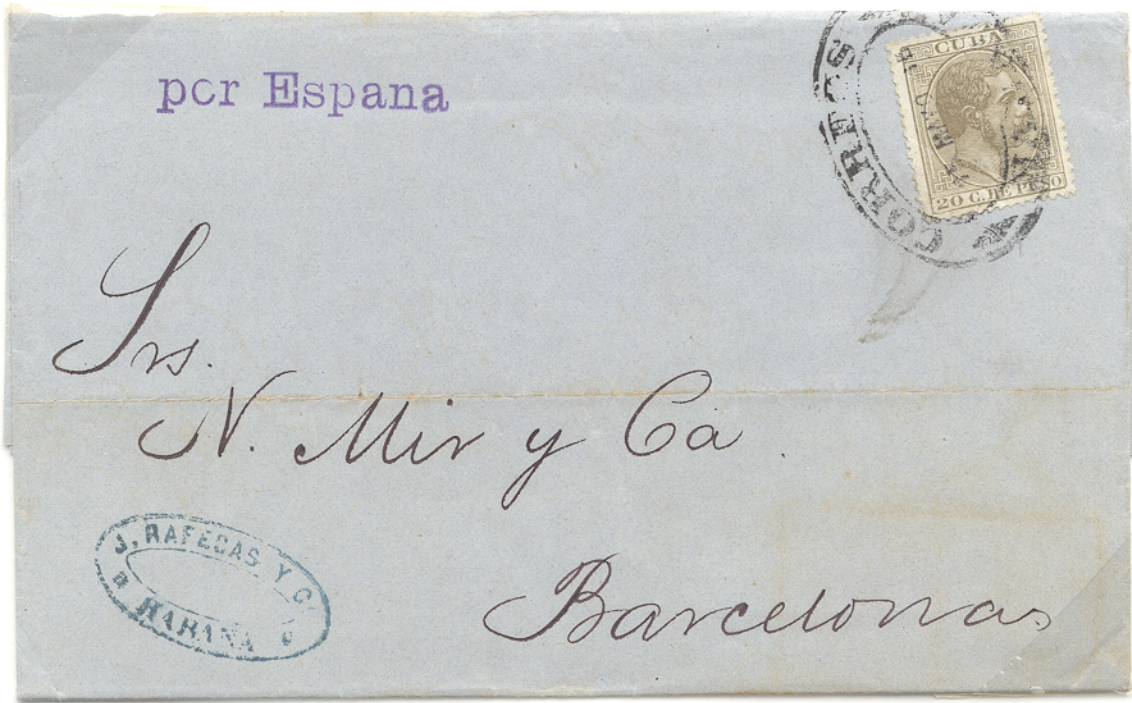 por Espana
CORREOS
CUBA
20 C. DE PESO
Srs.
N. Mir y Ca.
Barcelona
J. RAFECAS Y C.
HABANA